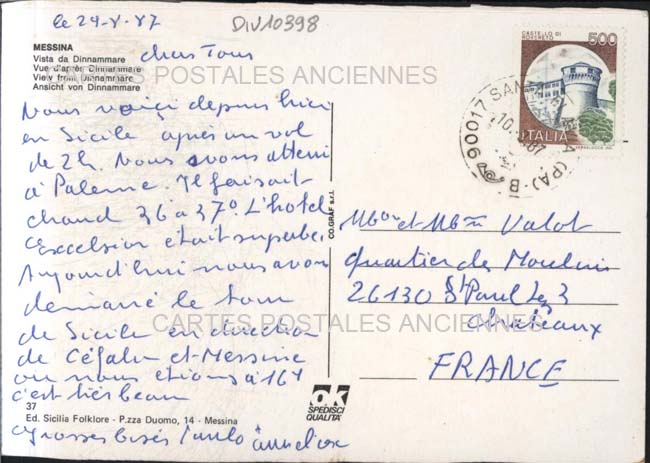 le 29-8-87
DIV10398
MESSINA
Vista da Dinnammare
Vue d'après Dinnammare
View from Dinnammare
Ansicht von Dinnammare
chers Tous
CARTES POSTALES ANCIENNES
Nous voici depuis hier
en Sicile après un vol
de 2h. Nous avons atterri
à Palerme. Il faisait
chaud 36 à 37° L'hotel
Excelsior était superbe.
Aujourd'hui nous avons
démarré le tour
de Sicile en direction
de Céfalu et Messine
ou nous etions à 16h
c'est très beau
37
Ed. Sicilia Folklore - P.zza Duomo, 14 - Messina
grosses bises
CO.GRAF s.r.l.
OK
SPEDISCI
QUALITÀ
CASTELLO DI
ROVERETO
500
ITALIA
90017 SANTA (PA) - B
10
87
Mor et Mme Valot
Quartier des Moulins
26130 St Paul les 3
chateaux
FRANCE
CARTES POSTALES ANCIENNES